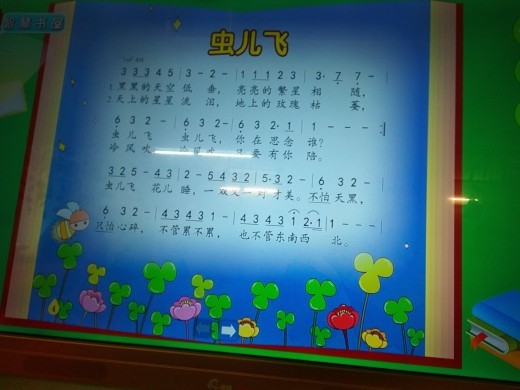 智慧书屋
虫儿飞
1=F 4/4
3 3 3 4 5 | 3 - 2 - | 1 1 1 2 3 | 3· 7 7 - |
1.黑黑的天空 低 垂, 亮亮的繁星 相 随,
2.天上的星星 流 泪, 地上的玫瑰 枯 萎,
6 3 2 - | 6 3 2 - | 6 3 2· 1 | 1 - - - :|
虫 儿 飞 虫 儿 飞, 你 在 思念 谁?
冷 风 吹 要 有 你 陪。
3 2 5 - 4 3 | 2 - 5 4 3 2 | 5· 3 2 - | 6 3 2 - |
虫儿飞 花儿 睡, 一 双 才 美。 不怕 天黑,
6 3 2 - | 4 3 4 3 1 - | 4 3 4 3 1 2· 1 | 1 - - - |
只怕 心碎, 不管累不累, 也不管东南西 北。